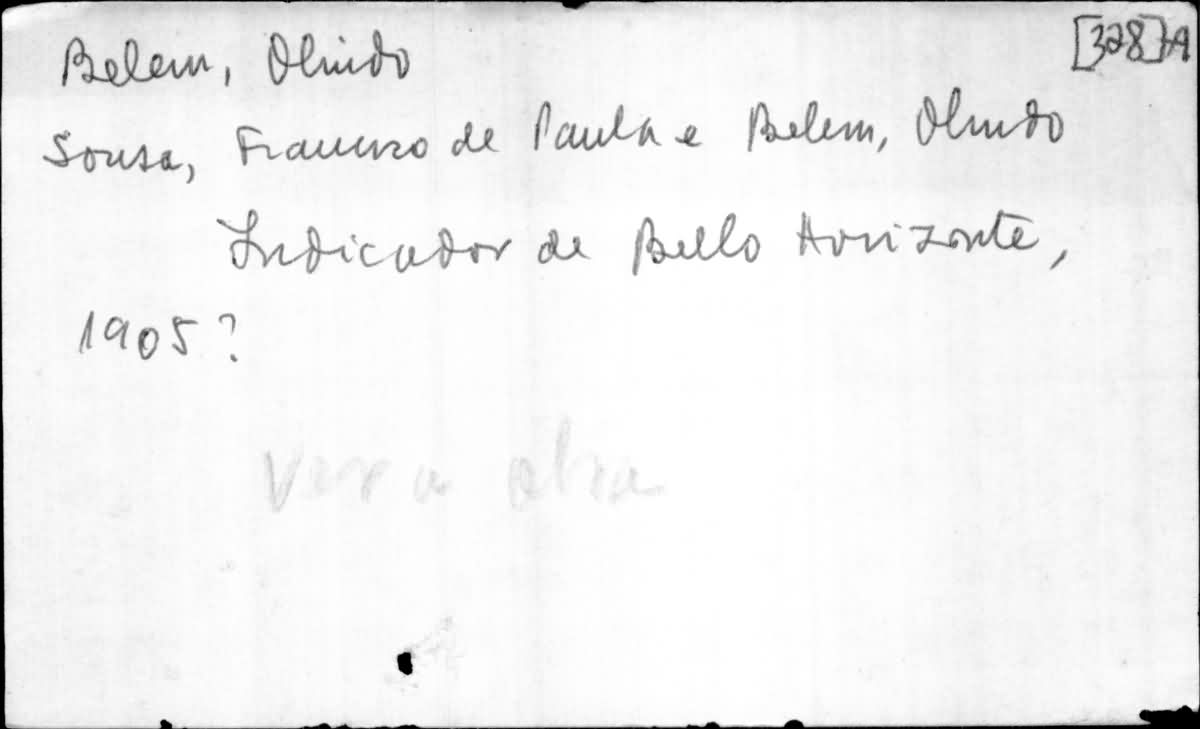 [328]A
Belem, Olindo
Sousa, Francisco de Paula e Belem, Olindo
Indicador de Bello Horizonte,
1905?
Ver a obra